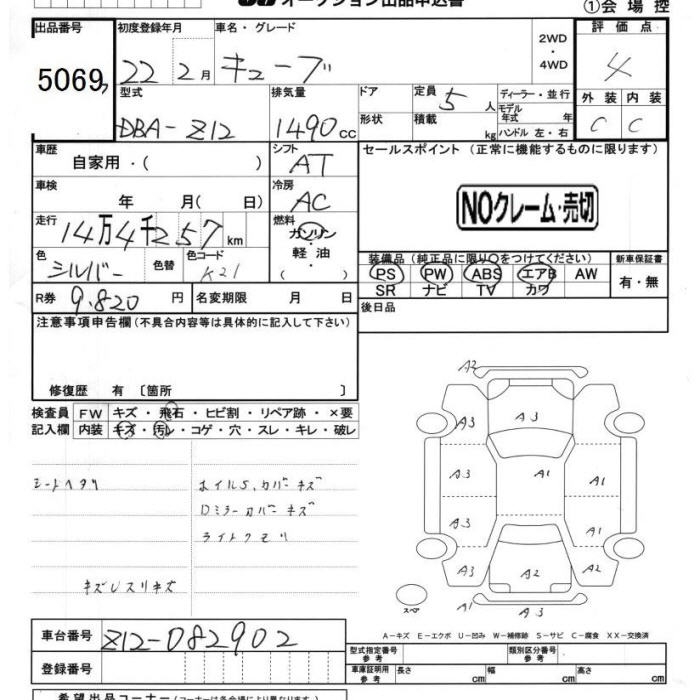 オークション出品申込書
①会場控
出品番号 初度登録年月 車名・グレード 2WD・4WD 評価点
5069 22 2月 キューブ 4
型式 排気量 ドア 定員 5 人 ディーラー・並行 外装 内装
DBA-Z12 1490cc 形状 積載 kg モデル年式 年 ハンドル 左・右 C C
車歴 自家用・( ) シフト AT セールスポイント (正常に機能するものに限ります)
車検 年 月( 日) 冷房 AC NOクレーム・売切
走行 14万4千257km 燃料 ガソリン・軽油・( )
色 シルバー 色替 色コード K21 装備品(純正品に限り○をつけてください) 新車保証書
PS PW ABS エアB AW 有・無
SR ナビ TV カワ
R券 9,820円 名変期限 月 日 後日品
注意事項申告欄(不具合内容等は具体的に記入して下さい)
修復歴 有 〔箇所 〕
検査員 FW キズ・飛石・ヒビ割・リペア跡・×要
記入欄 内装 キズ・汚レ・コゲ・穴・スレ・キレ・破レ
シートヘタリ ホイルS、カバーキズ
Dミラーカバーキズ
ライトクモリ
キズUスリキズ
A2
A3
A3 A1 A1
A3 A1
A3 A2 A2
A1 A3
スペア
A-キズ E-エクボ U-凹み W-補修跡 S-サビ C-腐食 XX-交換済
車台番号 Z12-082902
登録番号
型式指定番号 参考 類別区分番号 参考
車庫証明用 参考 長さ cm 幅 cm 高さ cm
希望出品コーナー